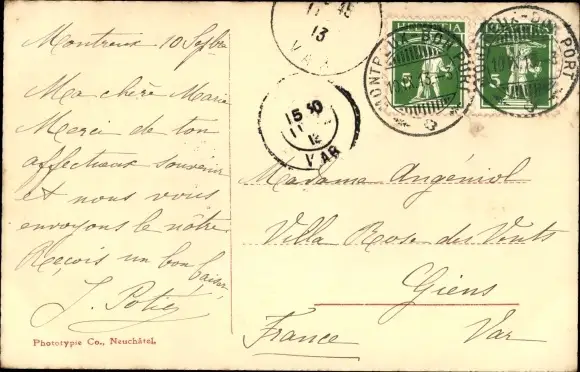 Montreux 10 Septbre
Ma chère Marie
Merci de ton
affectueux souvenir
et nous vous
envoyons le nôtre
Reçois un bon baiser
J. Potier
Phototypie Co., Neuchâtel.
45
13
VAR
15 30
12
VAR
HELVETIA
5
HELVETIA
5
MONTREUX-BON PORT
MONTREUX-BON PORT
Madame Angéniol
Villa Rose des Vents
Giens
France Var